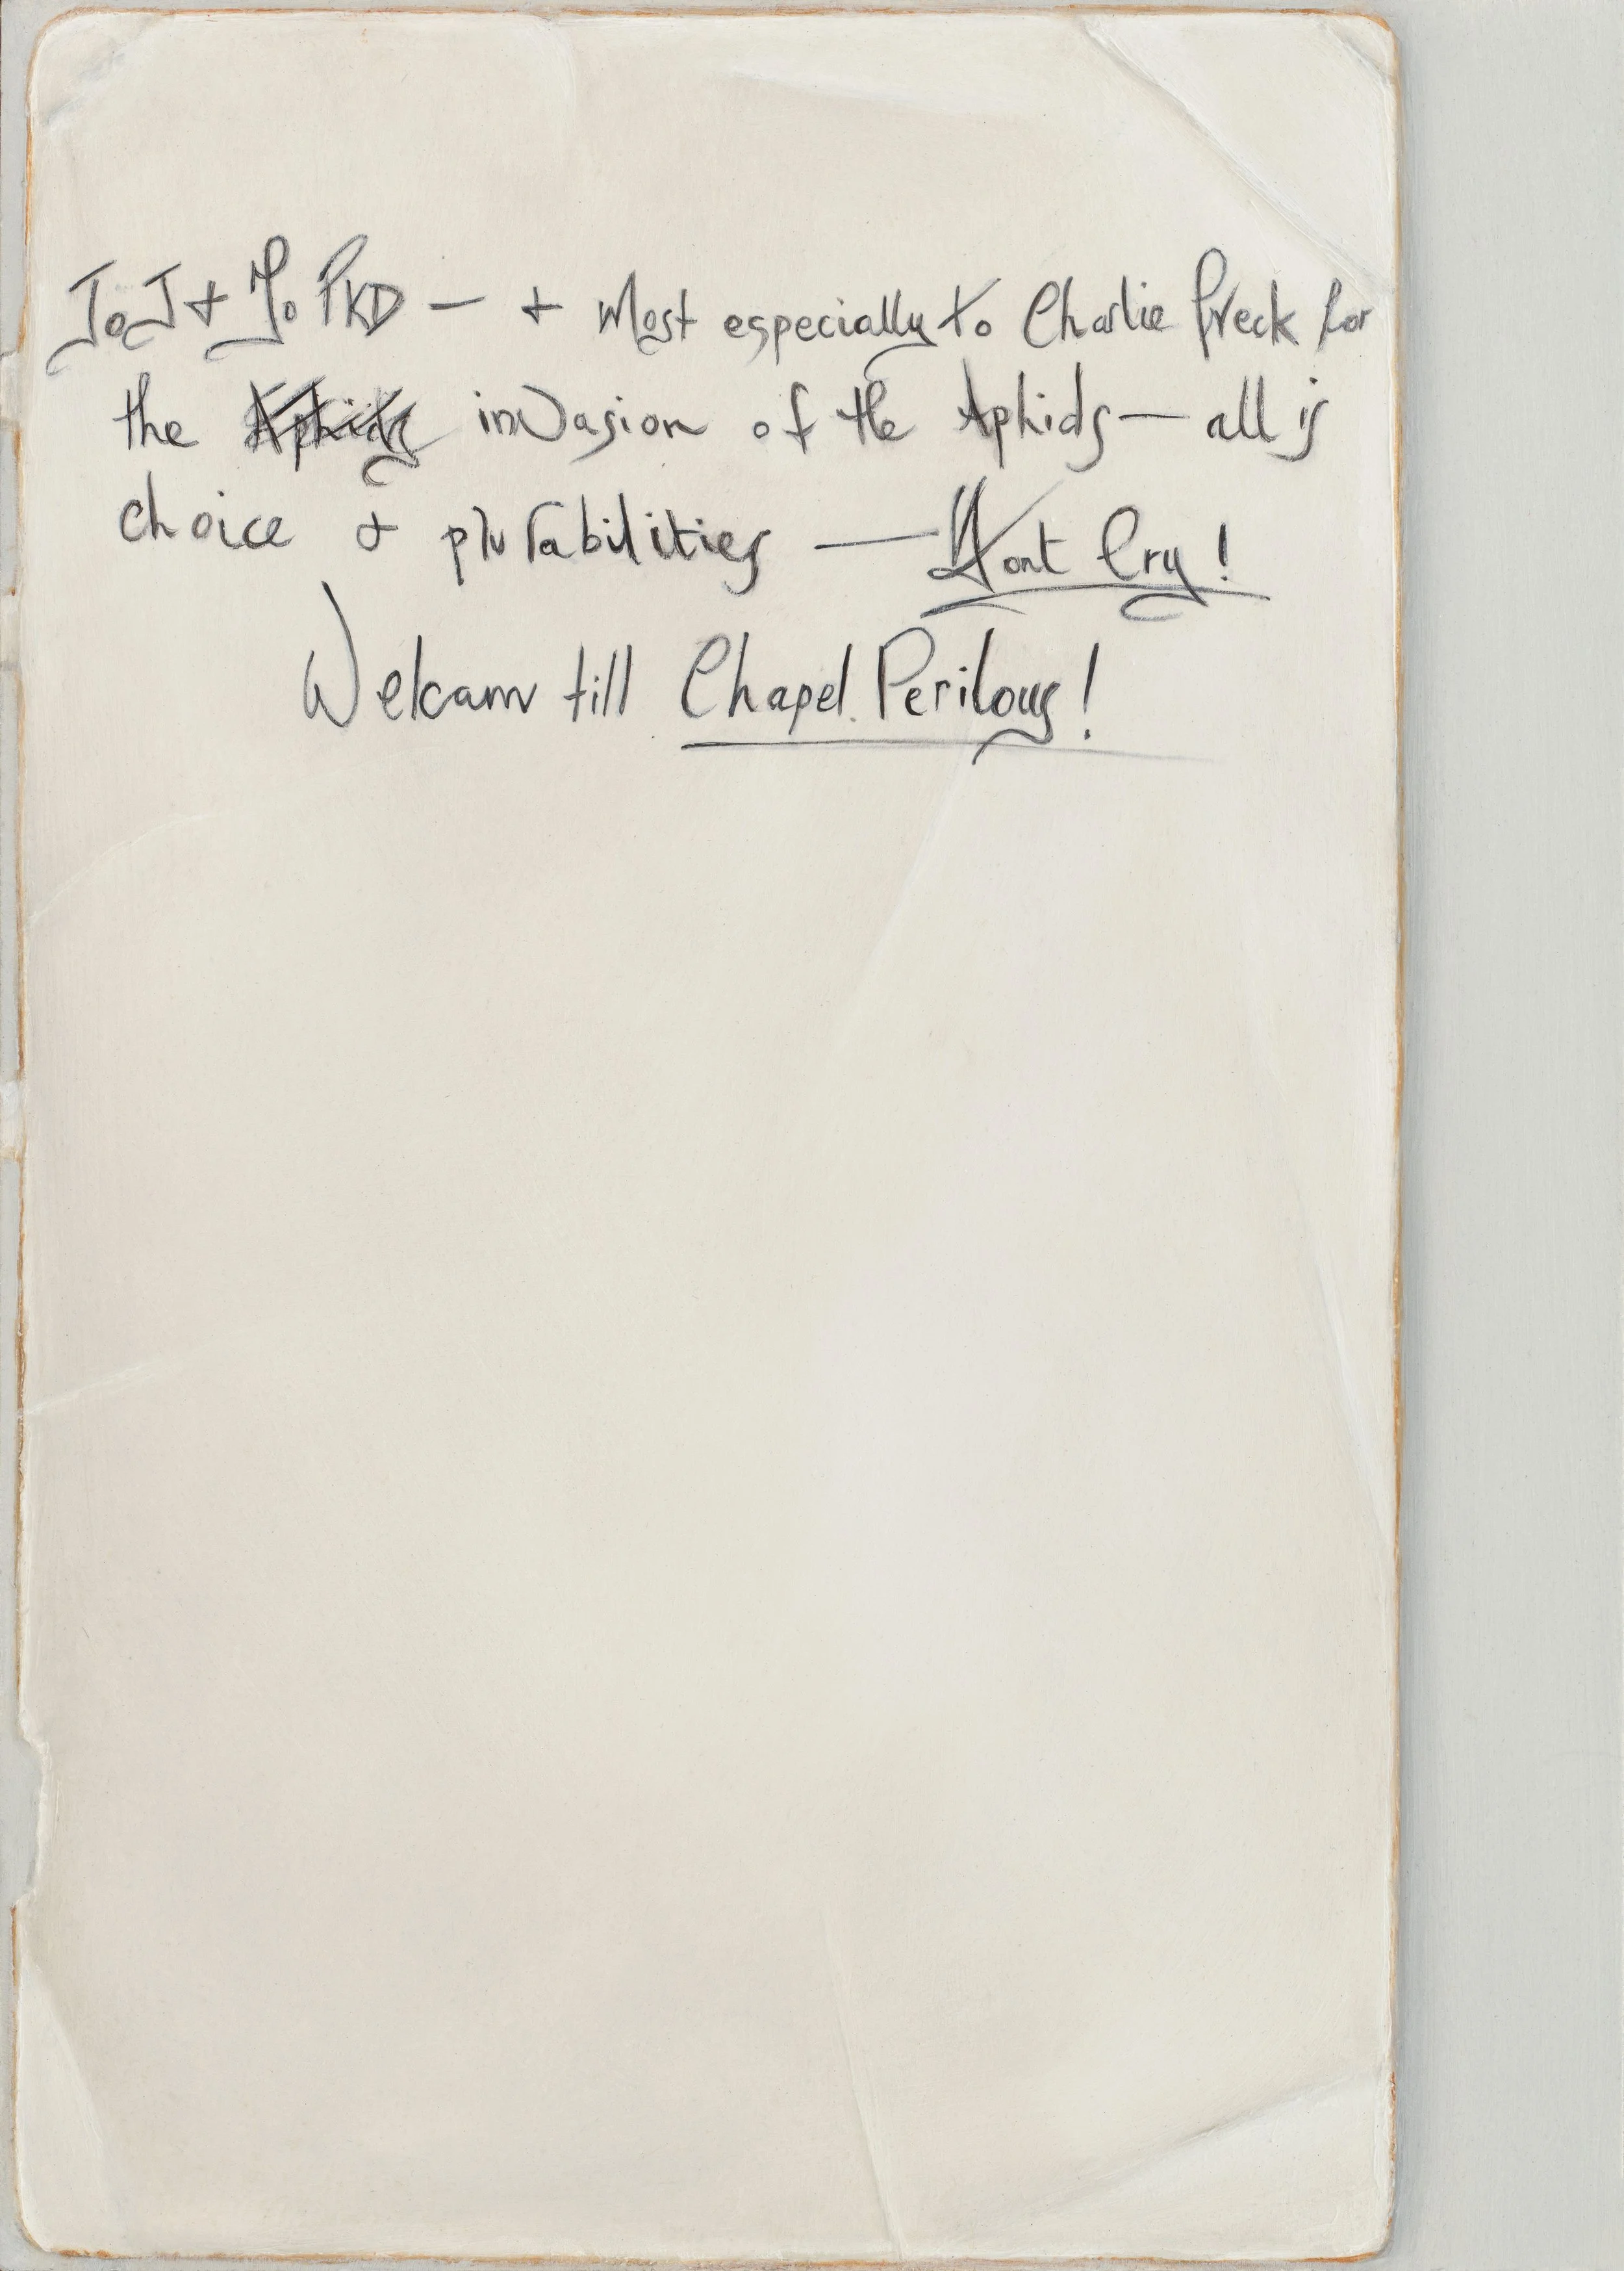 To J + To PKD — + most especially to Charlie Freck for
the Aphids invasion of the Aphids — all is
choice + plurabilities — Dont Cry!
Welcam till Chapel Perilous!